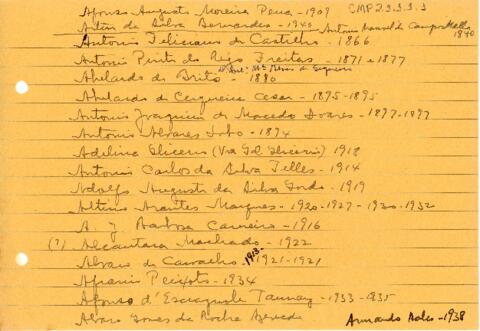 Afonso Augusto Moreira Pena - 1909 CMP 2.3.3.3
Artur da Silva Bernardes - 1940 Antonio Manuel de Campos Mello 1840
Antonio Feliciano de Castilho - 1866
Antonio Pinto do Rego Freitas - 1871 e 1877
Abelardo de Brito - 1880
Abelardo de Cerqueira Cesar - 1895-1895
Antonio Joaquim de Macedo Soares - 1877-1877
Antonio Alvares Lobo - 1874
Adelina Glicerio (Vva Gal. Glicerio) 1918
Antonio Carlos da Silva Telles - 1914
Adolfo Augusto da Silva Gordo - 1919
Altino Arantes Marques - 1920-1927-1930-1932
A. J. Barbosa Carneiro - 1916
(?) Alcantara Machado - 1922
Alvaro de Carvalho - 1913 1921-1921
Afranio Peixoto - 1934
Afonso d'Escragnolle Taunay - 1933-1935
Alvaro Gomes da Rocha Azevedo Armando Sales - 1938